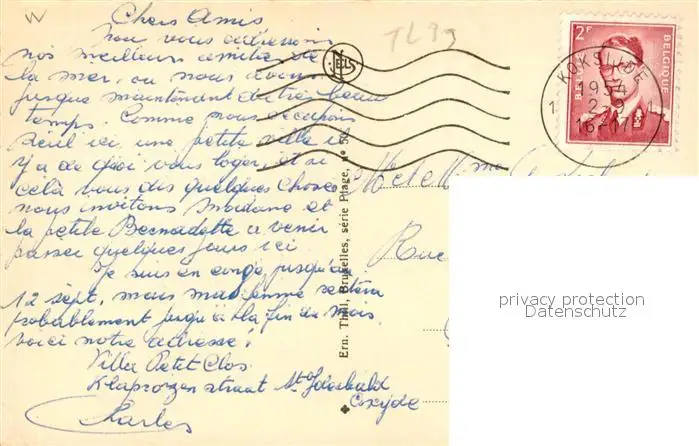 Chers Amis
nous vous adressons
nos meilleurs amitiés de
la mer, ou nous avons
jusque maintenant du très beau
temps. Comme nous occupons
seul ici une petite villa il
y a de quoi vous loger, et si
celà vous dis quelques choses
nous invitons Madame et
la petite Bernadette a venir
passer quelques jours ici
Je suis en congé jusqu'au
12 sept, mais ma femme restera
probablement jusqu'à la fin du mois.
voici notre adresse:
Villa Petit Clos
Klaprozen straat St Idesbald
Coxyde
Charles
TL 93
NELS
Ern. Thill, Bruxelles, série Plage, n° 50
2F
BELGIE
BELGIQUE
KOKSIJDE
1954
2-9
16-17
1 1
M et Mme
Rue
privacy protection
Datenschutz